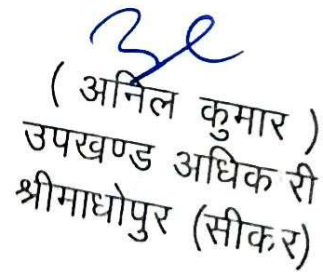 ( अनिल कुमार )
उपखण्ड अधिक री
श्रीमाधोपुर (सीकर)